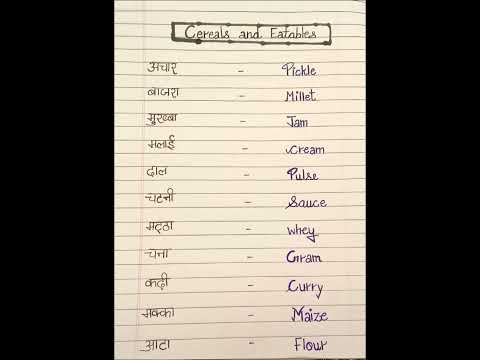 Cereals and Eatables
अचार - Pickle
बाजरा - Millet
मुरब्बा - Jam
मलाई - Cream
दाल - Pulse
चटनी - Sauce
मट्ठा - whey
चना - Gram
कढ़ी - Curry
मक्का - Maize
आटा - Flour